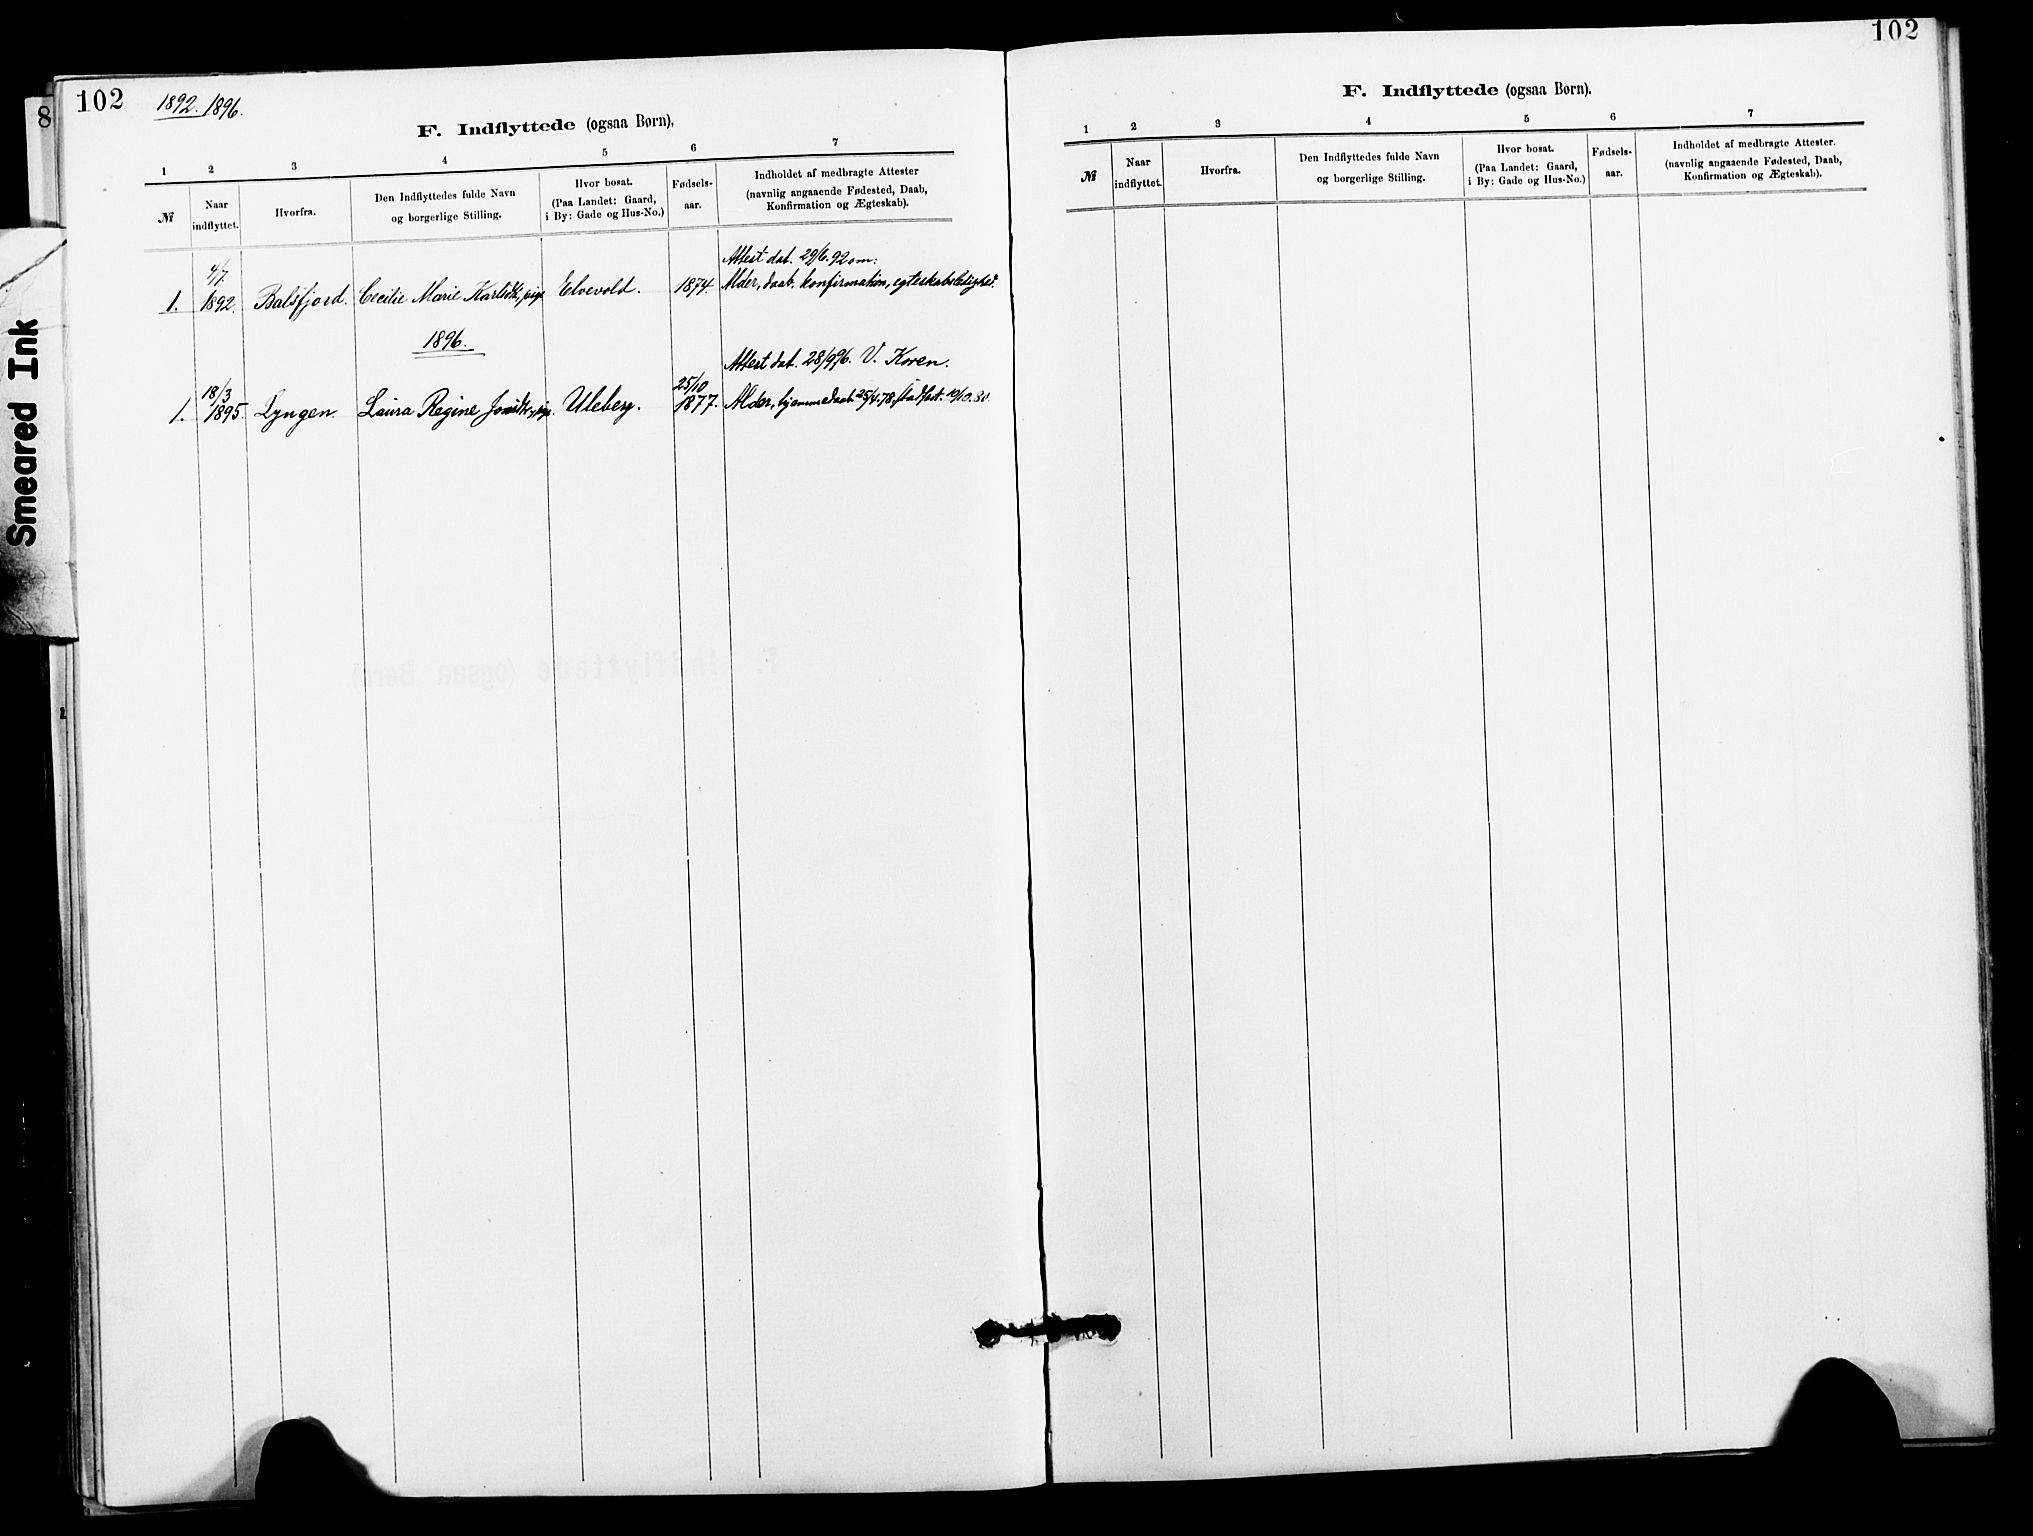 102
1892. 1896.
F. Indflyttede (ogsaa Børn),
1 2 3 4 5 6 7
№
Naar
indflyttet.
Hvorfra.
Den Indflyttedes fulde Navn
og borgerlige Stilling.
Hvor bosat.
(Paa Landet: Gaard,
i By: Gade og Hus-No.)
Fødsels-
aar.
Indholdet af medbragte Attester
(navnlig angaaende Fødested, Daab,
Konfirmation og Ægteskab).
4/7 Attest dat. 29/6. 92 om:
1. 1892. Balsfjord. Cecilie Marie Karlsdtr, pige Elvevold. 1874. Alder, daab, konfirmation, egteskabsledighed.
1896.
Attest dat. 28/9 96. V. Koren.
18/3 25/10
1. 1895. Lyngen. Laura Regine pige. Uleberg. 1877. Alder, hjemmedaab 25/4. 78, stadfæst. 10/10. 80.
F. Indflyttede (ogsaa Børn).
102
F. Indflyttede (ogsaa Børn).
1 2 3 4 5 6 7
№
Naar
indflyttet.
Hvorfra.
Den Indflyttedes fulde Navn
og borgerlige Stilling.
Hvor bosat.
(Paa Landet: Gaard,
i By: Gade og Hus-No.)
Fødsels-
aar.
Indholdet af medbragte Attester.
(navnlig angaaende Fødested, Daab,
Konfirmation og Ægteskab).
8
Smeared Ink